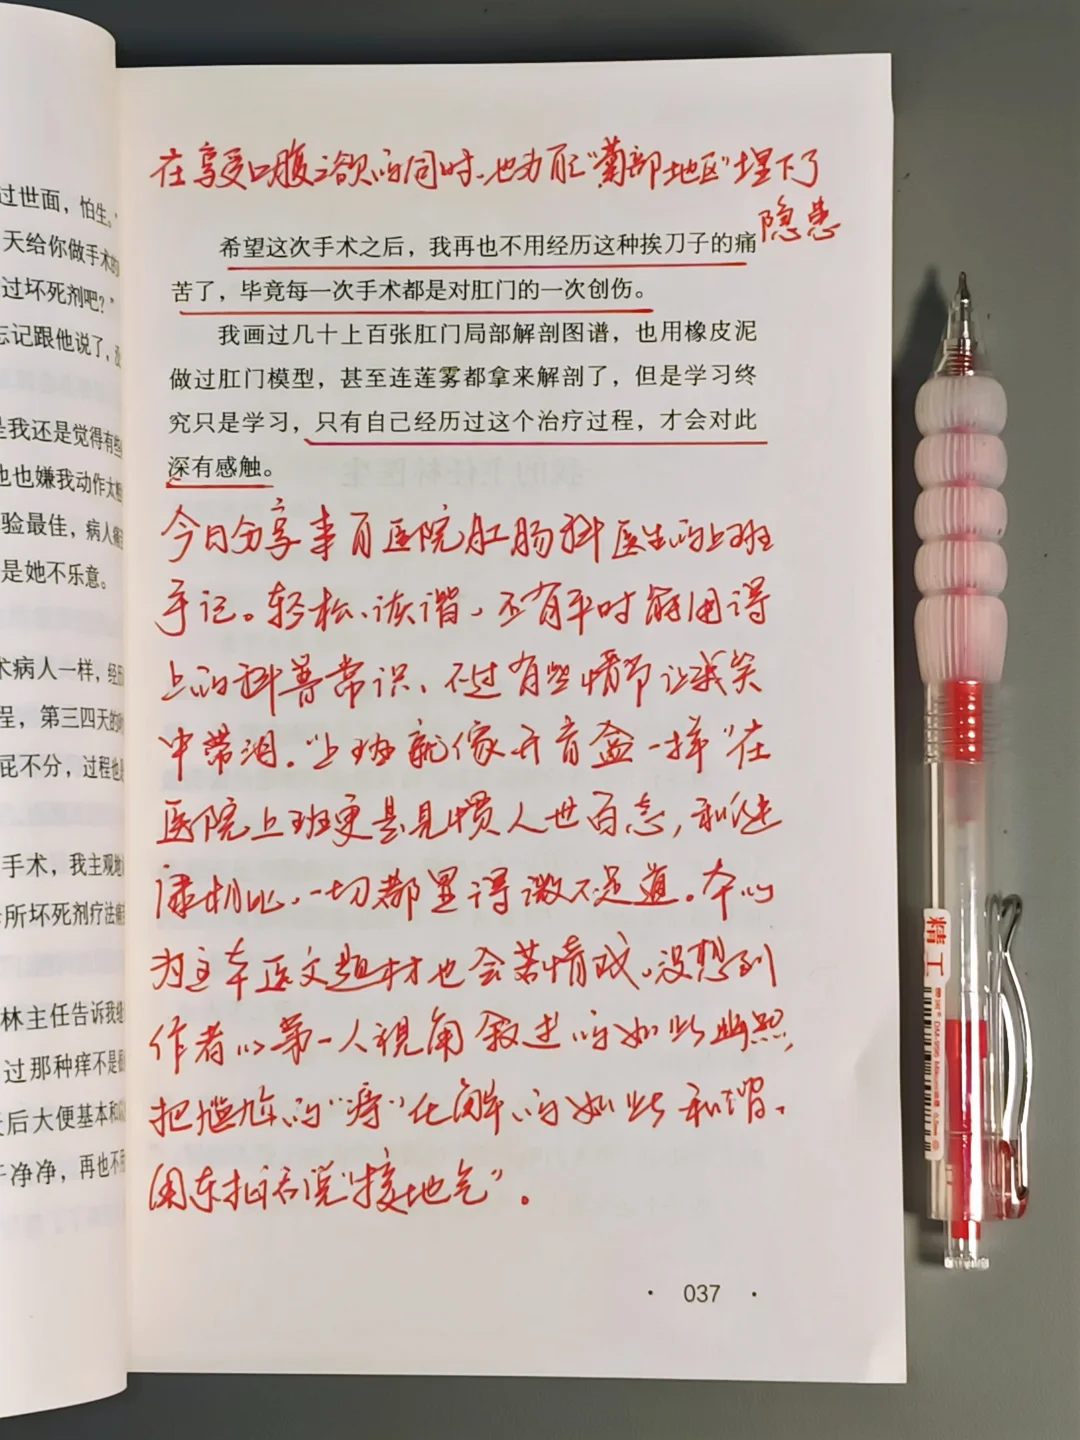 过世面，怕生。”
天给你做手术的
过坏死剂吧？”
忘记跟他说了，没
是我还是觉得有些
也也嫌我动作太
验最佳，病人痛
是她不乐意。
术病人一样，经历
程，第三四天的
屁不分，过程也
手术，我主观地
所坏死剂疗法痛
林主任告诉我
过那种痒不是
后大便基本和
干净净，再也不用
在享受口腹之欲的同时、也为自己“菊部地区”埋下了
隐患
希望这次手术之后，我再也不用经历这种挨刀子的痛
苦了，毕竟每一次手术都是对肛门的一次创伤。
我画过几十上百张肛门局部解剖图谱，也用橡皮泥
做过肛门模型，甚至连莲雾都拿来解剖了，但是学习终
究只是学习，只有自己经历过这个治疗过程，才会对此
深有感触。
今日分享来自医院肛肠科医生的上班
手记。轻松、诙谐、还有平时能用得
上的科普常识、不过有些情节让我笑
中带泪。“上班就像开盲盒一样”在
医院上班更是见惯人世百态，和健
康相比、一切都显得微不足道。本以
为这本医文题材也会苦情戏。没想到
作者以第一人视角叙述的如此幽默，
把尴尬的“痔”化解的如此和谐。
用东北话说“接地气”。
· 037 ·
精工
DM-996